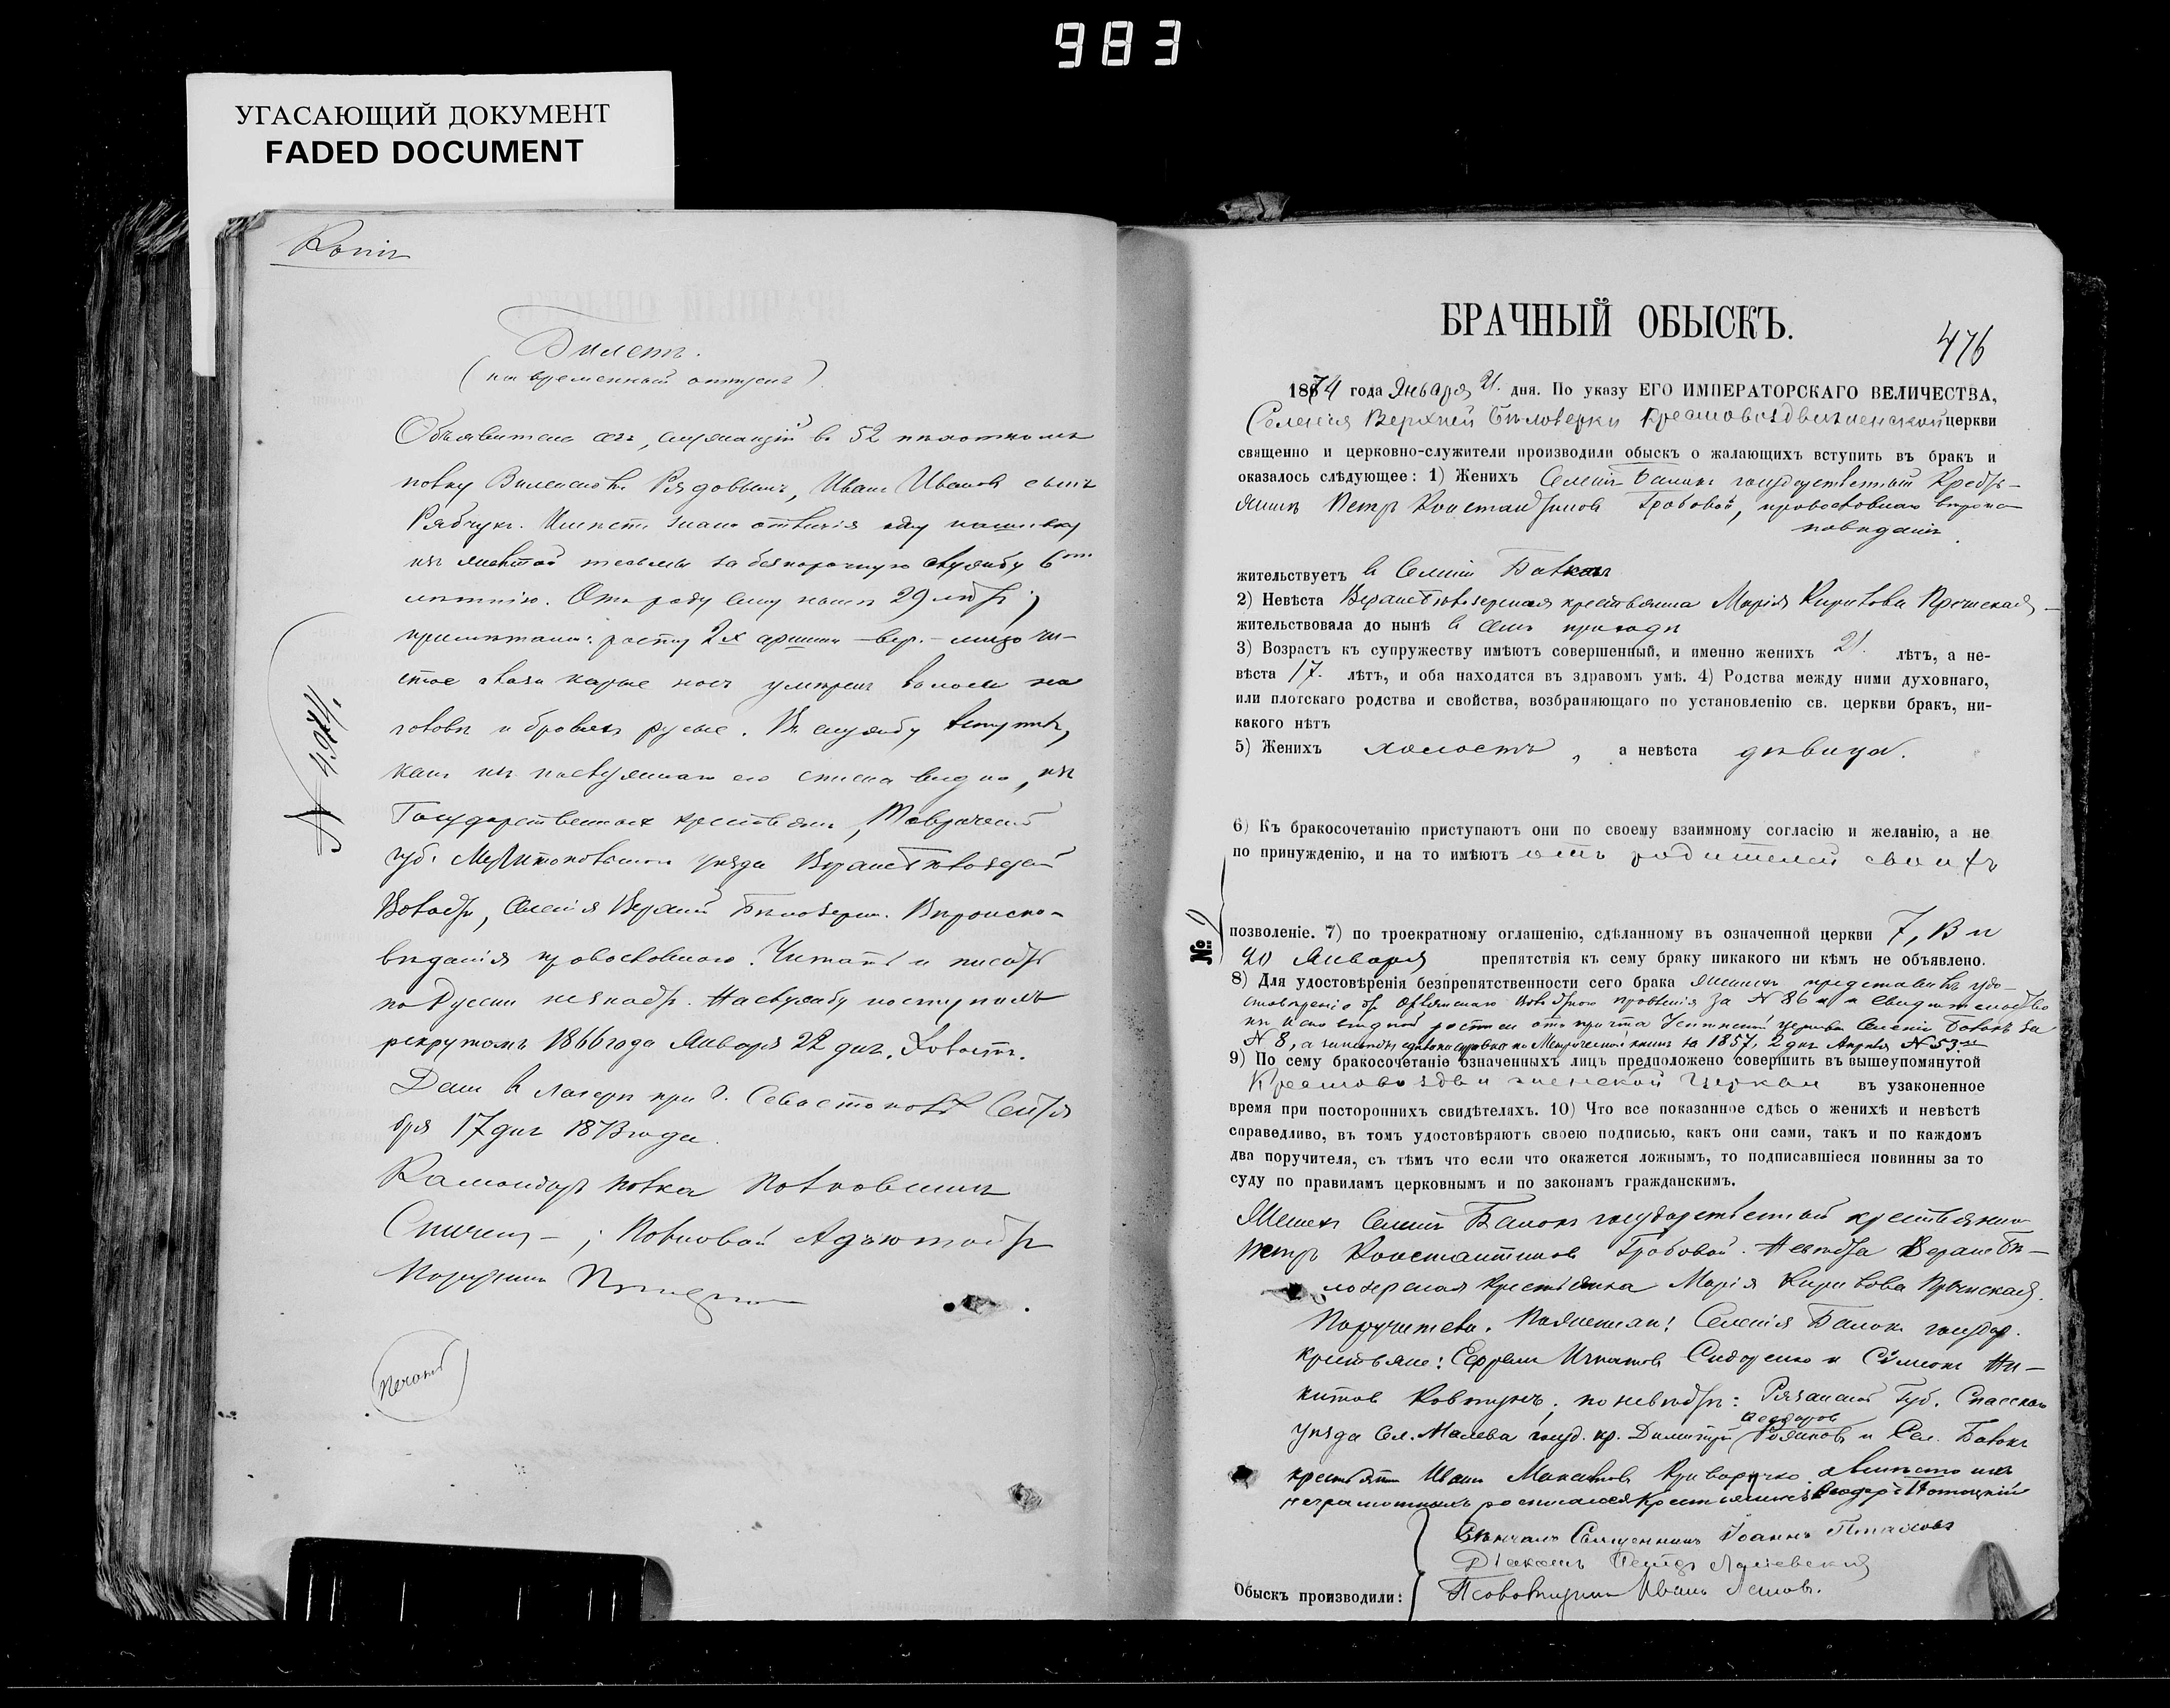 983
УГАСАЮЩИЙ ДОКУМЕНТ
FADED DOCUMENT
Копія
Билетъ.
(на временный отпускъ)
Объявитель сего, служащій въ 52 пѣхотномъ
полку Виленскомъ Рядовымъ, Иванъ Ивановъ сынъ
Рябчукъ. Имѣетъ знакъ отличія одну нашивку
изъ желтой тесьмы за безпорочную службу 6ти
лѣтнюю. Отъ роду ему нынѣ 29 лѣтъ,
примѣтами: росту 2х аршинъ – вер. – лицо чи-
стое глаза каріе носъ умѣренъ волосы на
головѣ и бровяхъ русые. Въ службу вступилъ,
какъ изъ послужнаго его списка видно, изъ
Государственныхъ крестьянъ, Таврической
губ. Мелитопольскаго уѣзда Верхнебѣлозерской
Волости, Селенія Верхней Бѣлозерки. Вѣроиспо-
вѣданія православнаго. Читать и писать
по Русски не знаетъ. На службу поступилъ
рекрутомъ 1866 года Января 22 дня. Холостъ.
Данъ въ лагерѣ при г. Севастополѣ Сентя
бря 17 дня 1873 года.
Командиръ полка Полковникъ
Полковой Адъютантъ
Поручикъ
Печать
№ 4974.
БРАЧНЫЙ ОБЫСКЪ.
476
1874 года Января 21. дня. По указу ЕГО ИМПЕРАТОРСКАГО ВЕЛИЧЕСТВА,
Селенія Верхней Бѣлозерки Крестовоздвиженской церкви
священно и церковно-служители производили обыскъ о жалающихъ вступить въ бракъ и
оказалось слѣдующее: 1) Женихъ Селенія Балокъ государственный Крестья-
янинъ Петръ Константиновъ Гробовой, православнаго вѣроис-
повѣданія.
жительствуетъ въ Селеніи Балкахъ
2) Невѣста Верхнебѣлозерская крестьянка Марія Кирилова
жительствовала до нынѣ въ семъ приходѣ
3) Возрастъ къ супружеству имѣютъ совершенный, и именно женихъ 21. лѣтъ, а не-
вѣста 17. лѣтъ, и оба находятся въ здравомъ умѣ. 4) Родства между ними духовнаго,
или плотскаго родства и свойства, возбраняющаго по установленію св. церкви бракъ, ни-
какого нѣтъ
5) Женихъ холостъ, а невѣста дѣвица.
6) Къ бракосочетанію приступаютъ они по своему взаимному согласію и желанію, а не
по принужденію, и на то имѣютъ отъ родителей своихъ
№ 9
позволеніе. 7) по троекратному оглашенію, сдѣланному въ означенной церкви 7, 13 и
20 Января препятствія къ сему браку никакого ни кѣмъ не объявлено.
8) Для удостовѣренія безпрепятственности сего брака женихъ представилъ удо-
стовѣреніе отъ Волостнаго правленія за № 86 и свидѣтельство
изъ исповѣдной росписи отъ причта Успенской церкви Селенія Балокъ за
№ 8, а по Метрической книгѣ за 1857, 2 дня Апрѣля № 53.
9) По сему бракосочетаніе означенныхъ лицъ предположено совершить въ вышеупомянутой
Крестовоздвиженской Церкви въ узаконенное
время при постороннихъ свидѣтеляхъ. 10) Что все показанное сдѣсь о женихѣ и невѣстѣ
справедливо, въ томъ удостовѣряютъ своею подписью, какъ они сами, такъ и по каждомъ
два поручителя, съ тѣмъ что если что окажется ложнымъ, то подписавшіеся повинны за то
суду по правиламъ церковнымъ и по законамъ гражданскимъ.
Женихъ Селенія Балокъ государственный крестьянинъ
Петръ Константиновъ Гробовой. Невѣста Верхнебѣ-
лозерская крестьянка Марія Кирилова
Поручители. По женихѣ: Селенія Балокъ государ.
крестьяне: Ефремъ Игнатовъ Сидоренко и Сѵмеонъ Ни-
китовъ Ковтунъ; по невѣстѣ: Рязанской Губ. Спасскаго
уѣзда Сел. Малева госуд. кр. Димитрій Федоровъ и Сел. Балокъ
крестьянинъ Иванъ Криворучко а вмѣсто ихъ
неграмотныхъ росписался Крестьянинъ Феодоръ Потоцкій
Вѣнчалъ Священникъ Іоаннъ
Діаконъ Петръ
Обыскъ производили: Псаломщикъ Иванъ